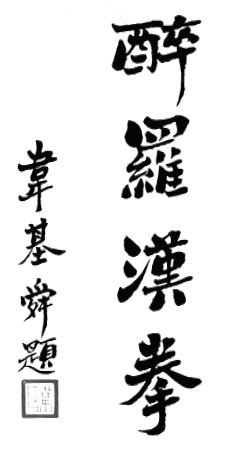 醉羅漢拳
韋基舜題